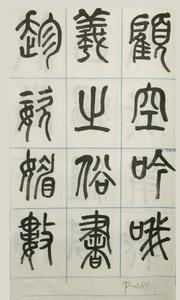 顧空吟哦
羲之俗書
趁姿媚數
P-081